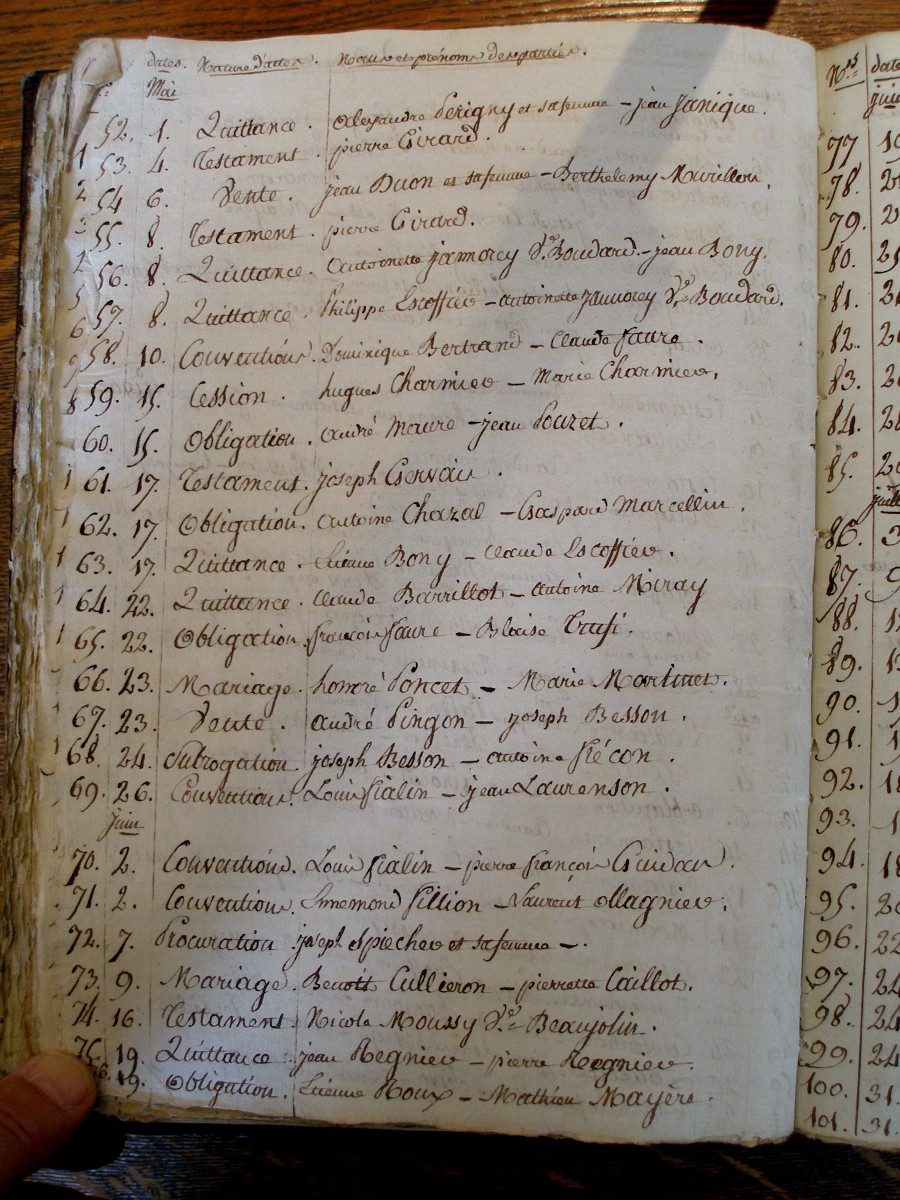 dates. Nature d'actes. Noms et prénoms des parties.
Mai
52. 1. Quittance. Alexandre Périgny et sa femme – jean janique.
53. 4. Testament. pierre Girard.
54 6. Vente. jean Duon et sa femme – Berthelemy Mavillon.
55. 8. Testament. pierre Girard.
56. 8. Quittance. antoinette jamorey Ve. Boudard. – jean Bony.
57. 8. Quittance. Philippe Escoffier – antoinette jamorey Ve Boudard.
58. 10. Conventions. Dominique Bertrand – Claude faure.
59. 15. Cession. hugues Charmier – Marie Charmier.
60. 15. Obligation. andré Maure – jean Pouzet.
61. 17. Testament. joseph Gervais.
62. 17. Obligation. antoine Chazal – Gaspard Marcellin.
63. 17. Quittance. Etienne Bony – Claude Escoffier.
64. 22. Quittance. Claude Barrillot – antoine Miray
65. 22. Obligation. françois faure – Blaise
66. 23. Mariage. honoré Poncet – Marie Martinet.
67. 23. Vente. andré Pingon – joseph Besson.
68. 24. Subrogation. joseph Besson – antoine
69. 26. Conventions. Louis fialin – jean Laurenson.
juin
70. 2. Conventions. Louis fialin – pierre françois
71. 2. Conventions. Ennemond fillion – Laurent ollagnier.
72. 7. Procuration joseph Spiecher et sa femme –.
73. 9. Mariage. Benoît Cullieron – pierrette Caillot.
74. 16. Testament. Nicole Moussy Ve. Beaujolin.
75. 19. Quittance. jean Regnier – pierre Regnier.
19. Obligation. Etienne Roux – Mathieu Mayère.
Nos date
juin
77 19
78.
79.
80.
81.
82.
83.
84.
85.
juill
86. 3
87. 9
88.
89.
90.
91.
92. 18
93.
94. 18
95.
96. 22
97. 24
98. 24
99. 24
100. 31.
101. 31.